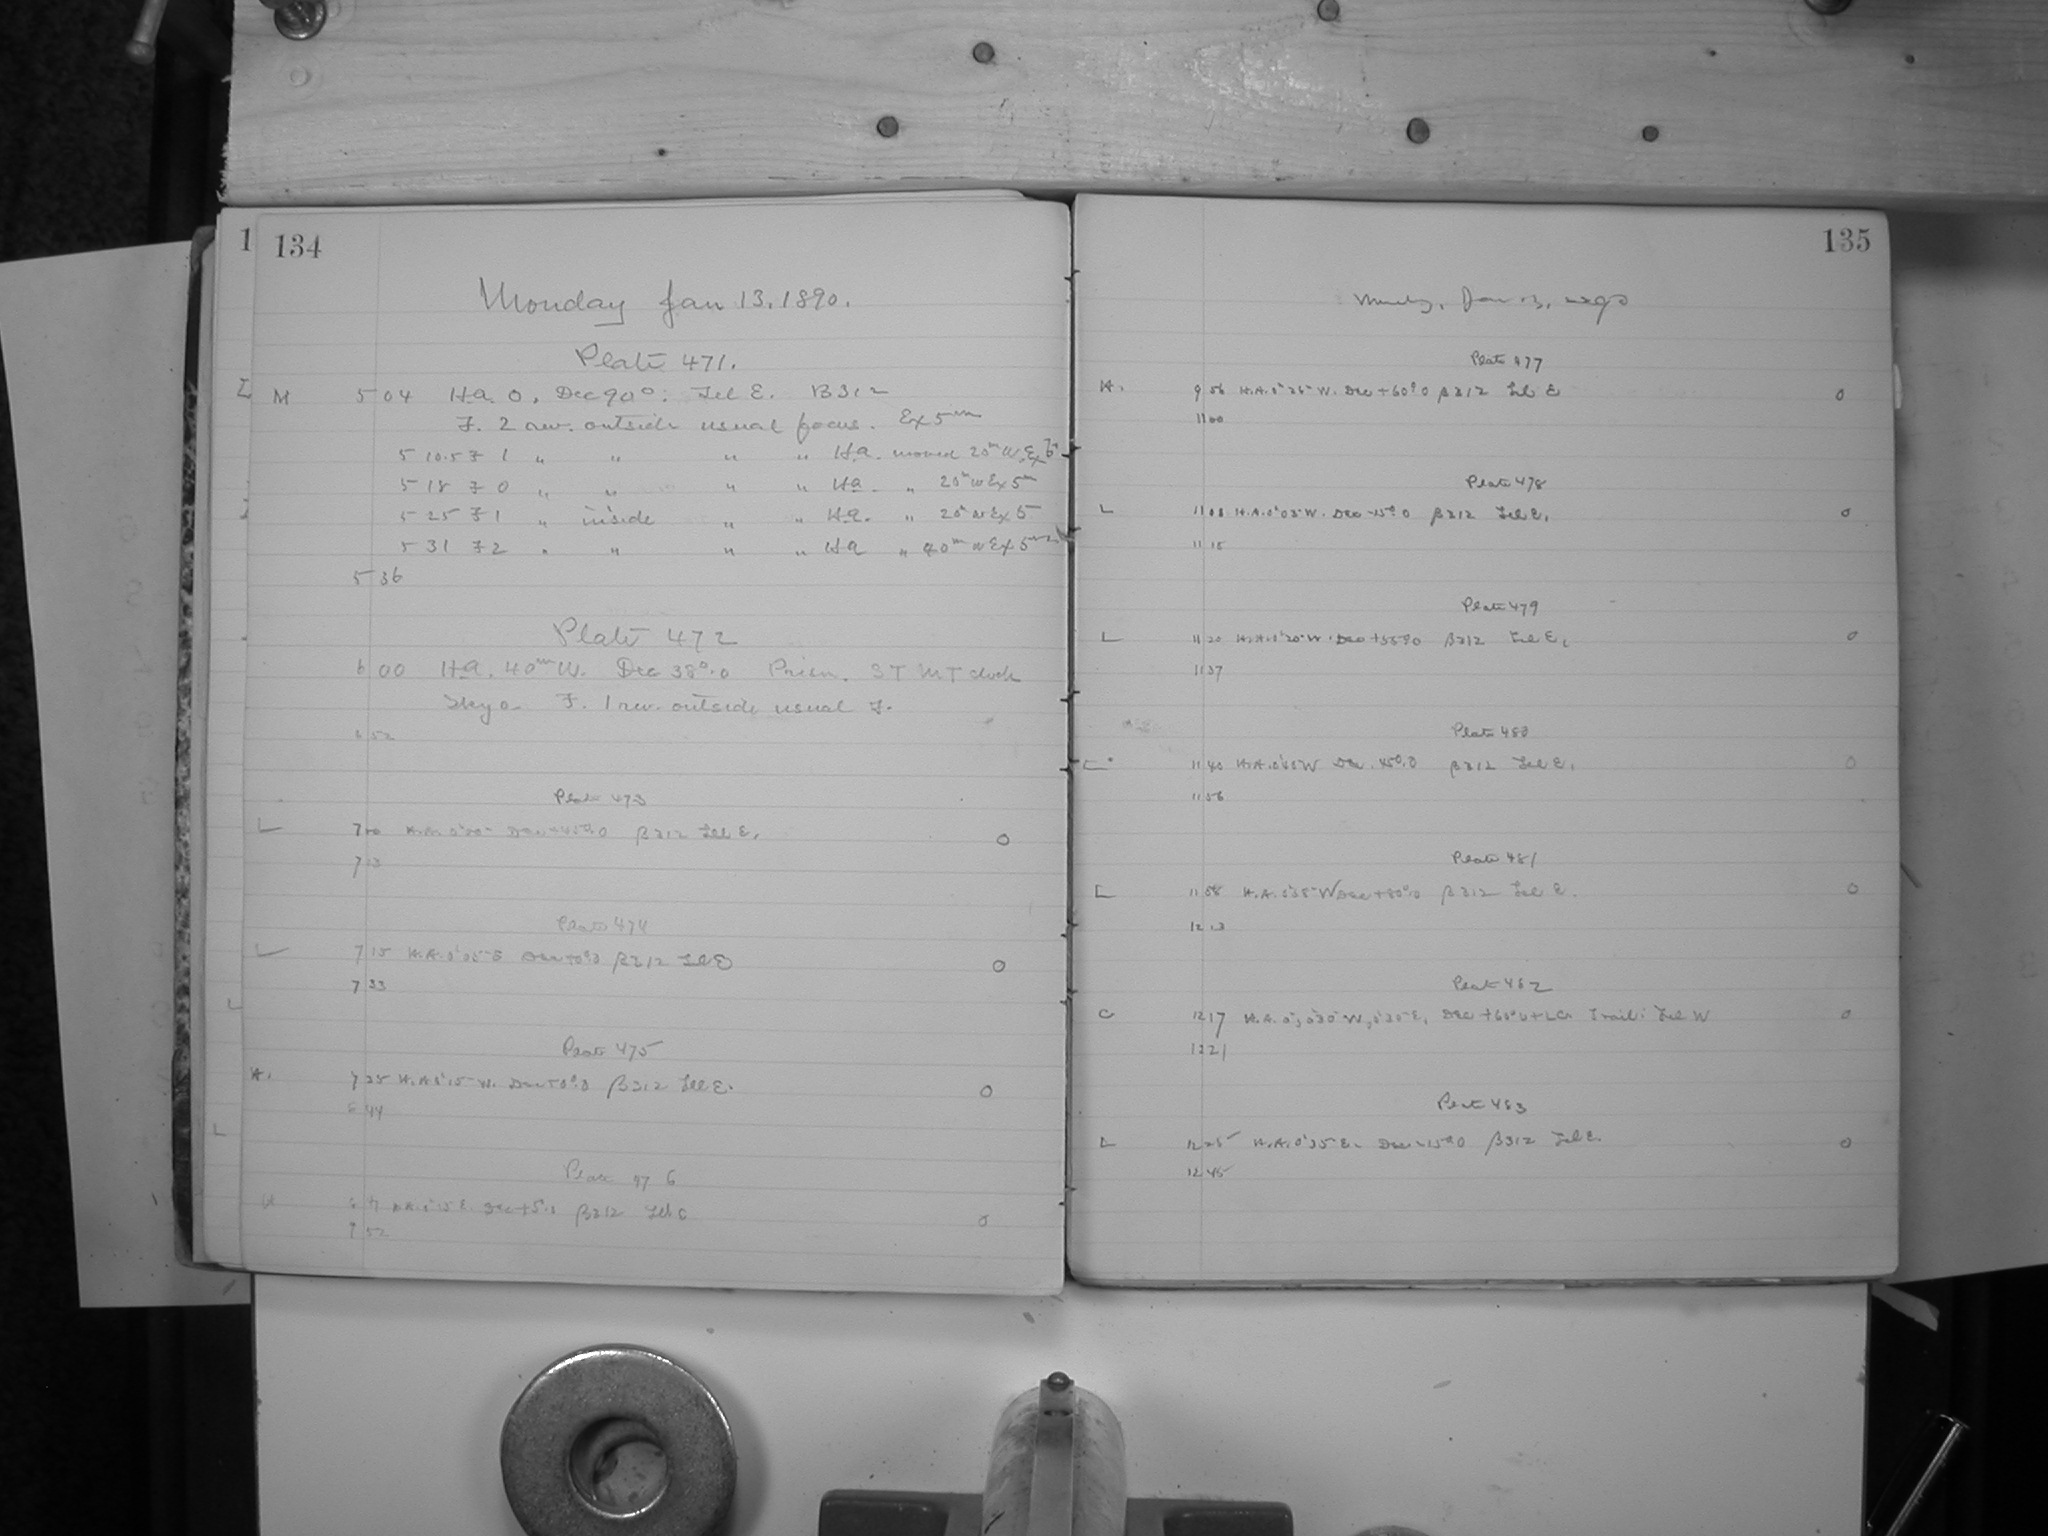 1 134
Monday Jan 13. 1890.
Plate 471.
M 5 04 Ha. 0. Dec 90°: Tel E. B312
F. 2 rev. outside usual focus. Ex 5m
5 10.5 F 1 " " " " Ha. moved 20m W. Ex 5m
5 18 F 0 " " " " Ha. " 20m W Ex 5m
5 25 F 1 " inside " " Ha. " 20m W Ex 5
5 31 F 2 " " " " Ha " 40m W Ex 5m
5 36
Plate 472
6 00 Ha. 40m W. Dec 38°.0 Prism. ST MT clock
F. 1 rev. outside usual F.
6 52
Plate 473
L 7 00 β312 Tel E. 0
7 13
Plate 474
L 7 15 H.A. 0 05 E β312 Tel E 0
7 33
Plate 475
A. 7 35 H.A. 0 15 W. β312 Tel E. 0
8 44
Plate 476
β312 Tel E 0
9 52
135
Monday, Jan 13, 1890
Plate 477
A. 9 56 H.A. W. Dec +60°.0 β312 Tel E 0
11 00
Plate 478
L 11 08 H.A. 0 05 W. Dec -15°.0 β312 Tel E. 0
11 18
Plate 479
L 11 20 H.A. 0 20 W. Dec β312 Tel E. 0
11 37
Plate 480
L 11 40 H.A. W Dec 45°.0 β312 Tel E. 0
11 56
Plate 481
L 11 58 H.A. 0 35 W Dec +30°.0 β312 Tel E. 0
12 13
Plate 482
C 12 17 H.A. 0, 0 30 W, 0 30 E, Dec Trail: Tel W 0
12 21
Plate 483
L 12 25 H.A. 0 35 E. Dec -15°.0 β312 Tel E. 0
12 45